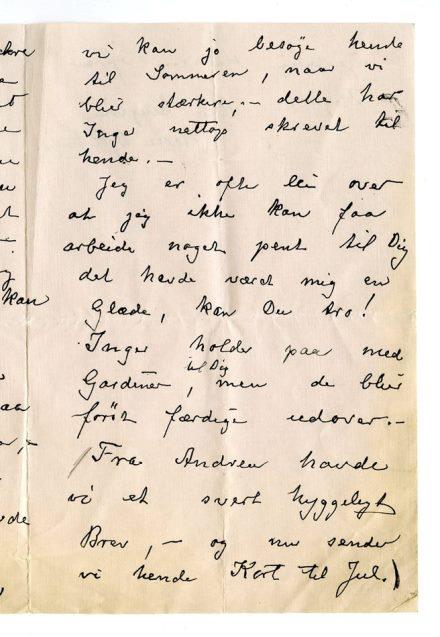 vi kan jo besøge hende
til Sommeren, naar vi
blir stærkere, – dette har
Inger nettop skrevet til
hende. –
Jeg er ofte lei over
at jeg ikke kan faa
arbeide noget pent til Dig
det havde været mig en
Glæde, kan Du tro!
Inger holder paa med
Gardiner til Dig, men de blir
først færdige udover. –
Fra Andrea havde
vi et svært hyggeligt
Brev, – og nu sender
vi hende Kort til Jul.)
kan